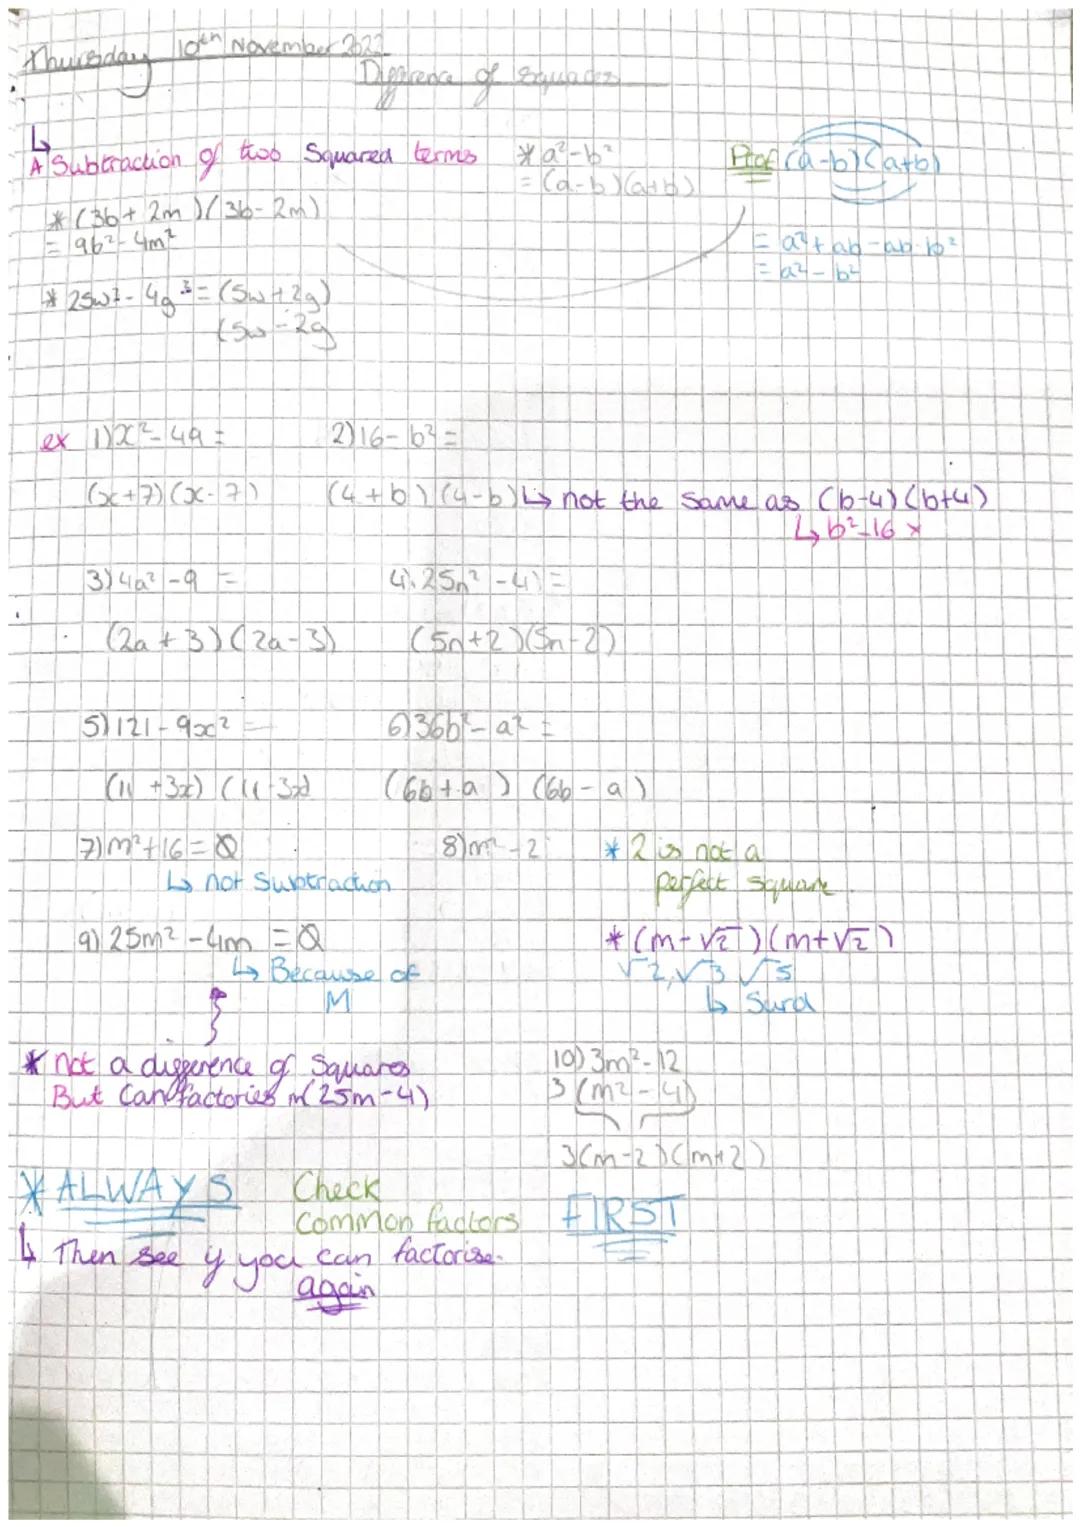 Thursday 10th November 2022
Difference of Squares
↳
A Subtraction of two Squared terms
* a²-b²
= (a-b)(a+b)
Proof (a-b)(a+b)
= a²+ab-ab-b²
= a²-b²
* (3b+2m)(3b-2m)
= 9b²-4m²
* 25w²-4g² = (5w+2g)
(5w-2g
ex 1) x²-49 =
(x+7)(x-7)
2) 16-b² =
(4+b)(4-b) ↳ not the same as (b-4)(b+4)
↳ b²-16 ×
3) 4a²-9 =
(2a+3)(2a-3)
4) 25n²-4 =
(5n+2)(5n-2)
5) 121-9x² =
(11+3x)(11-3x)
6) 36b²-a² =
(6b+a)(6b-a)
7) m²+16 = ∅
↳ not Subtraction
8) m²-2
* 2 is not a
perfect square
* (m-√2)(m+√2)
√2, √3 √5
↳ Surd
9) 25m²-4m = ∅
↳ Because of
M
* not a difference of Squares
But Can factories m(25m-4)
10) 3m²-12
3(m²-4)
3(m-2)(m+2)
* ALWAYS Check
common factors FIRST
↳ Then see if you can factorise
again